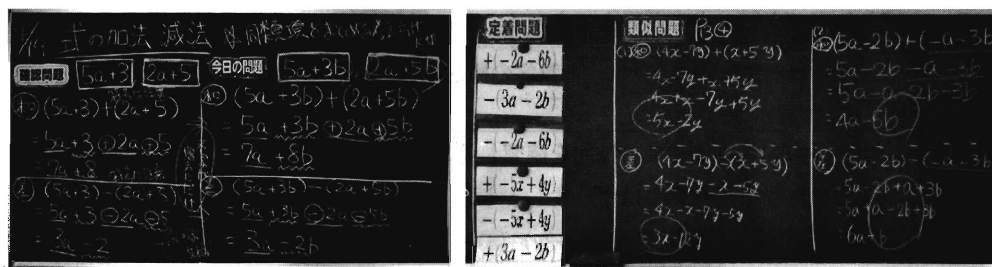 式の加法 減法
確認問題 5a+3 2a+5
(5a+3)+(2a+5)
= 5a+3+2a+5
= 7a+8
(5a+3)-(2a+5)
= 5a+3-2a-5
= 3a-2
今日の問題 5a+3b 2a+5b
(5a+3b)+(2a+5b)
= 5a+3b+2a+5b
= 7a+8b
(5a+3b)-(2a+5b)
= 5a+3b-2a-5b
= 3a-2b
定着問題
+(-2a-6b)
-(3a-2b)
-(-2a-6b)
+(-5x+4y)
-(-5x+4y)
+(3a-2b)
類似問題 P34
(1) (4x-7y)+(x+5y)
=4x-7y+x+5y
=4x+x-7y+5y
=5x-2y
(4x-7y)-(x+5y)
=4x-7y-x-5y
=4x-x-7y-5y
=3x-12y
(5a-2b)+(-a-3b
=5a-2b-a-3b
=5a-a-2b-3b
=4a-5b
(5a-2b)-(-a-3b
=5a-2b+a+3b
=5a+a-2b+3b
=6a+b